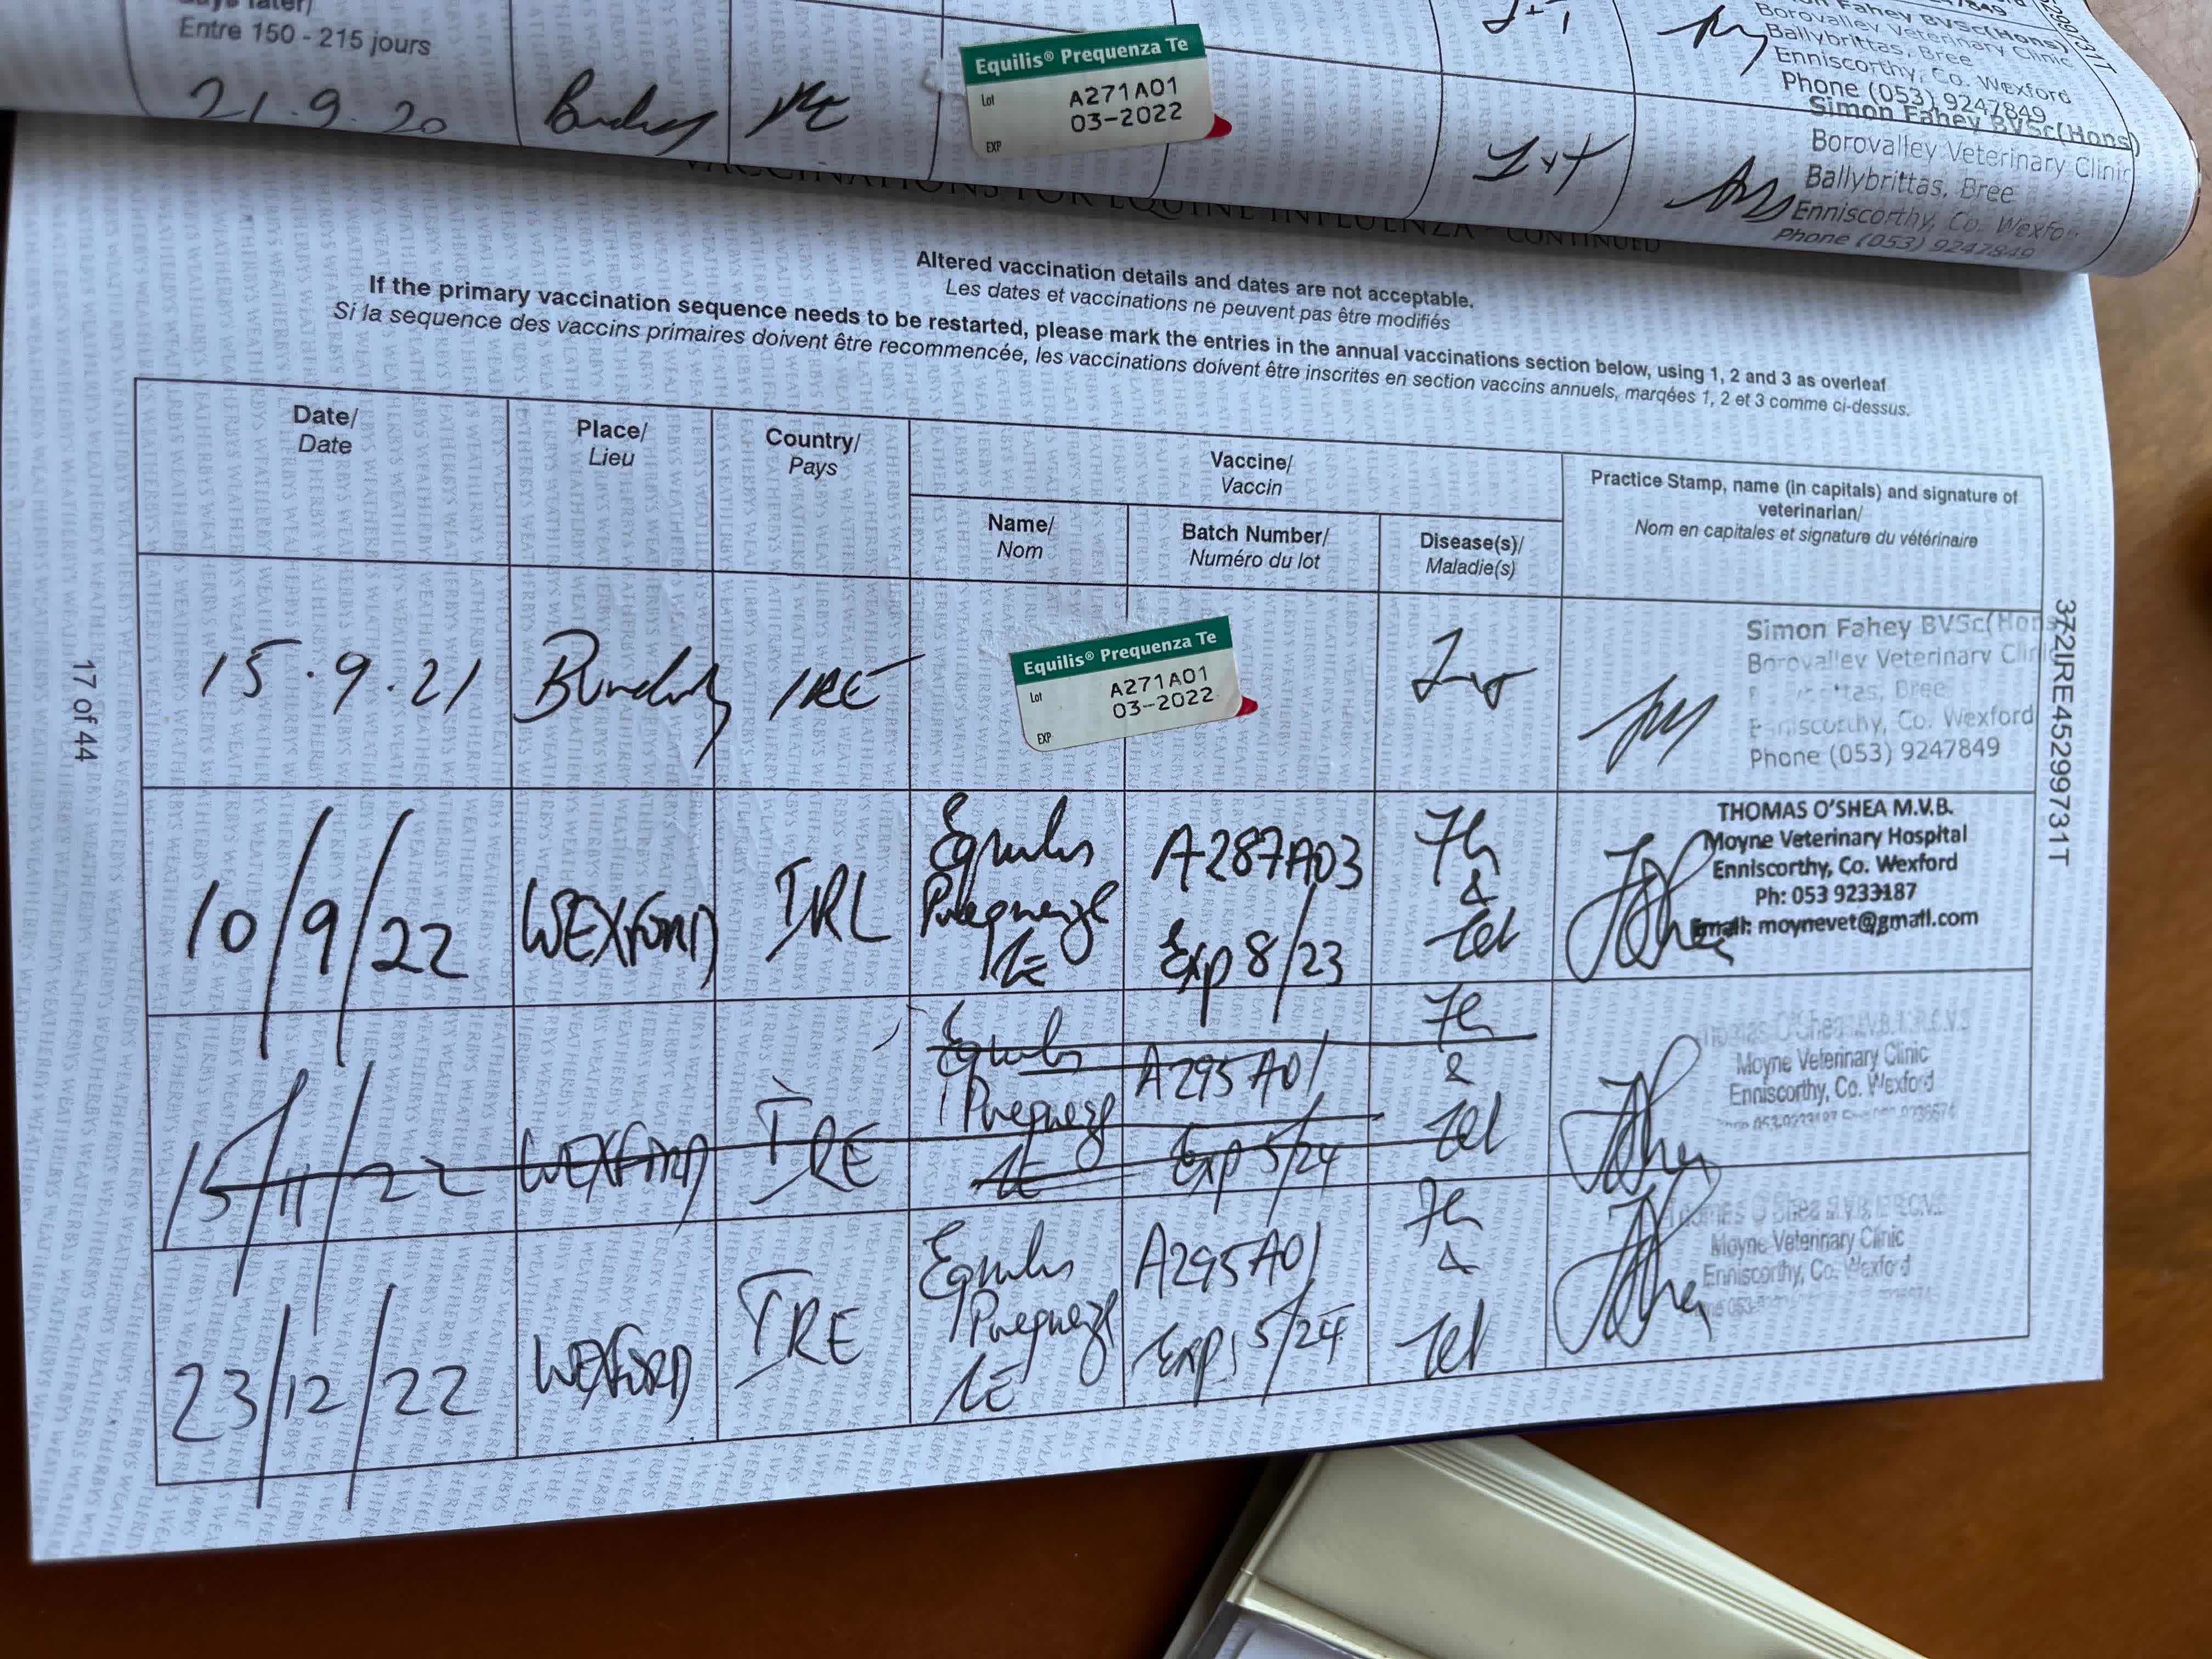 Entre 150 - 215 jours
21.9.20
Equilis® Prequenza Te
Lot A271A01
03-2022
EXP
I+T
Fahey BVSc(Hons)
Borovalley Veterinary Clinic
Ballybrittas, Bree
Enniscorthy, Co. Wexford
Phone (053) 9247849
Simon Fahey BVSc(Hons)
Borovalley Veterinary Clinic
Ballybrittas, Bree
Enniscorthy, Co. Wexfo
Phone (053) 9247849
VACCINATIONS FOR EQUINE INFLUENZA - CONTINUED
Altered vaccination details and dates are not acceptable.
Les dates et vaccinations ne peuvent pas être modifiés
If the primary vaccination sequence needs to be restarted, please mark the entries in the annual vaccinations section below, using 1, 2 and 3 as overleaf
Si la sequence des vaccins primaires doivent être recommencée, les vaccinations doivent être inscrites en section vaccins annuels, marqées 1, 2 et 3 comme ci-dessus.
Date/
Date
Place/
Lieu
Country/
Pays
Vaccine/
Vaccin
Name/
Nom
Batch Number/
Numéro du lot
Disease(s)/
Maladie(s)
Practice Stamp, name (in capitals) and signature of
veterinarian/
Nom en capitales et signature du vétérinaire
15.9.21
IRE
Equilis® Prequenza Te
Lot A271A01
03-2022
EXP
Simon Fahey BVSc(Hons
Borovalley Veterinary Clinic
Bree
Enniscorthy, Co. Wexford
Phone (053) 9247849
10/9/22 WEXFORD IRL
Equilis
Prequenza
TE
A287A03
Exp 8/23
Flu
&
Tet
THOMAS O'SHEA M.V.B.
Moyne Veterinary Hospital
Enniscorthy, Co. Wexford
Ph: 053 9233187
Email: moynevet@gmail.com
15/11/22 WEXFORD IRE
Equilis
Prequenza
TE
A295A01
Exp 5/24
Flu
&
Tet
Thomas O'Shea M.V.B. M.R.C.V.S
Moyne Veterinary Clinic
Enniscorthy, Co. Wexford
23/12/22 WEXFORD IRE
Equilis
Prequenza
TE
A295A01
Exp 5/24
Flu
&
Tet
Thomas O'Shea
Moyne Veterinary Clinic
Enniscorthy, Co. Wexford
17 of 44
372IRE45299731T